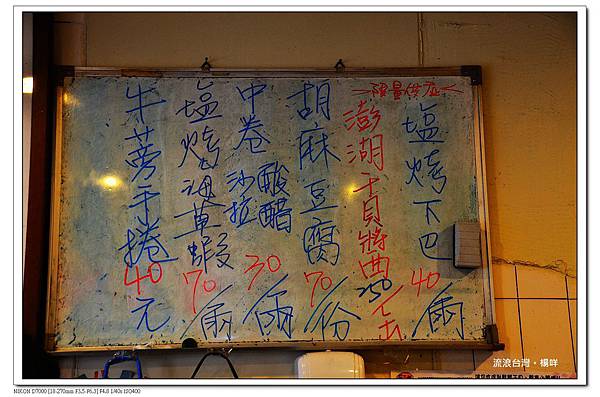 >限量供应<
塩烤下巴 40/兩
澎湖干貝將曲 250/去
胡麻豆腐 70/份
中卷沙拉 酸醋 30/兩
塩烤海草蝦 70/兩
牛蒡手捲 40元
流浪台灣・楊咩
NIKON D7000 [18-270mm F3.5-F6.3] F4.8 1/40s ISO400